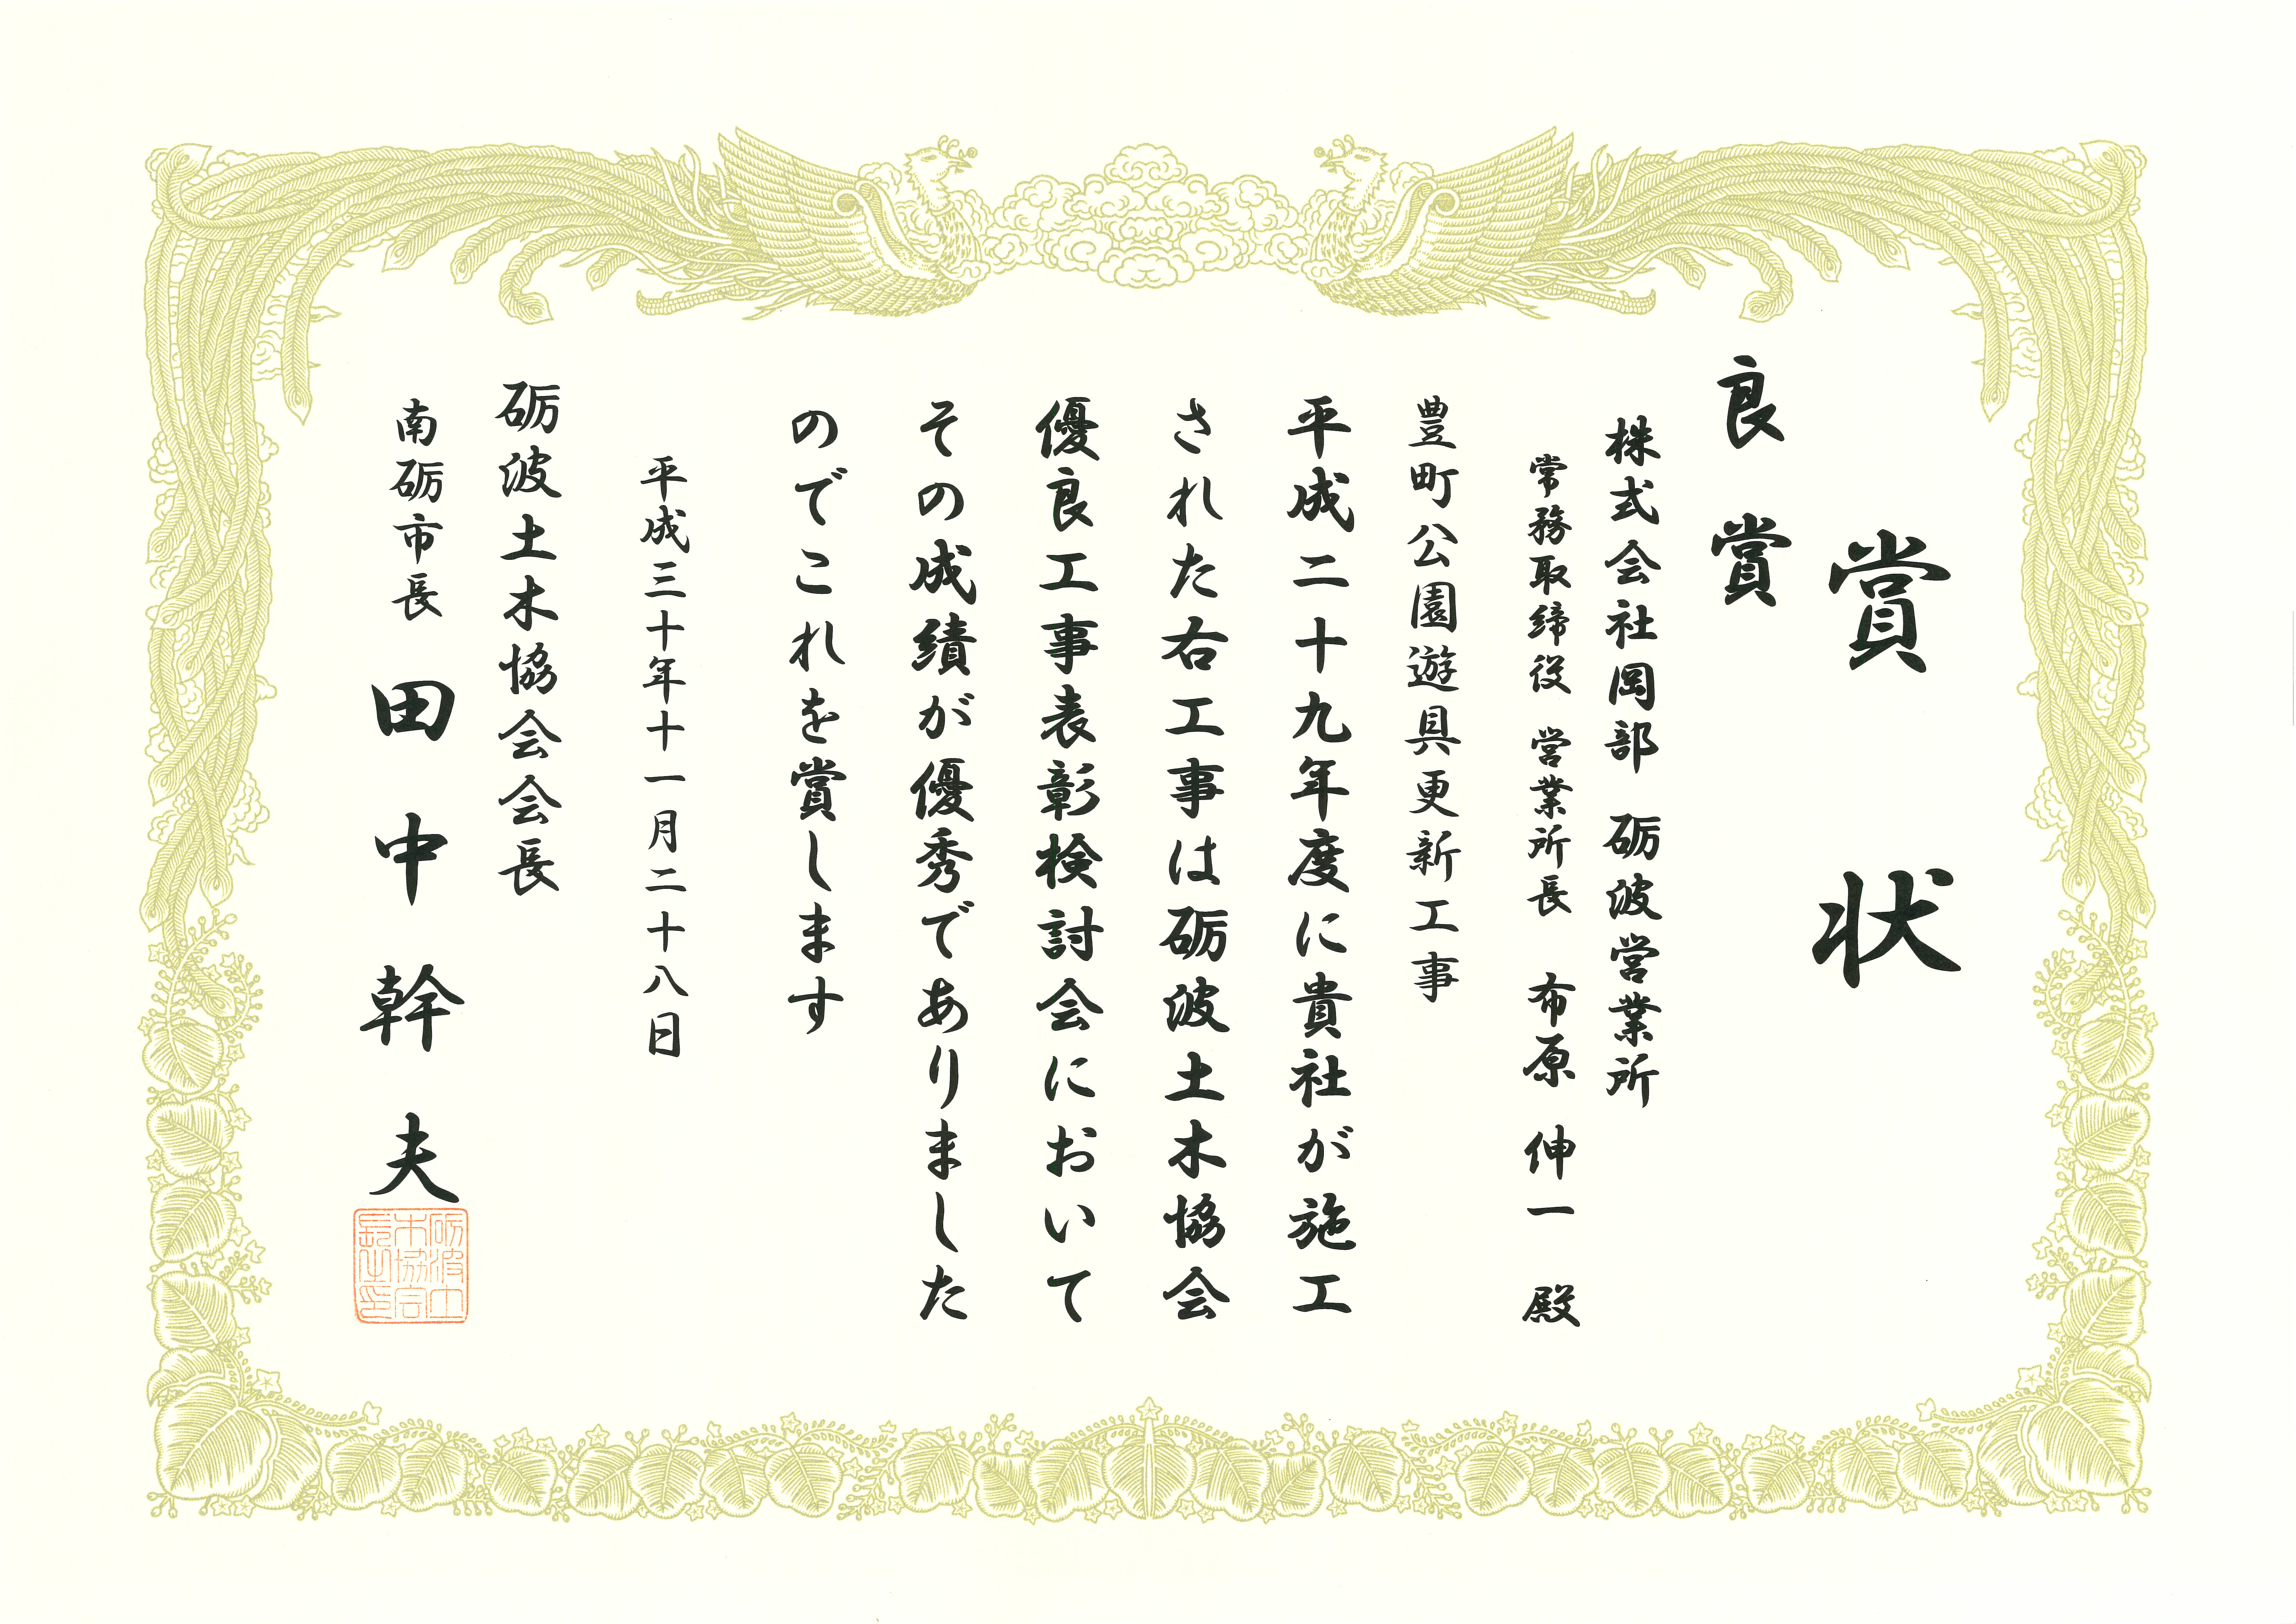 賞状
良賞
株式会社岡部 砺波営業所
常務取締役 営業所長 布原 伸一 殿
豊町公園遊具更新工事
平成二十九年度に貴社が施工
された右工事は砺波土木協会
優良工事表彰検討会において
その成績が優秀でありました
のでこれを賞します
平成三十年十一月二十八日
砺波土木協会会長
南砺市長 田中幹夫
砺波土
木協会
長之印